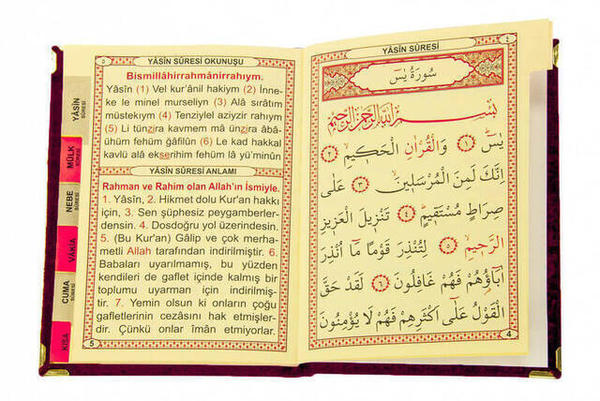 ٤
YÂSİN SÛRESİ
سُورَةُ يٰسٓ
بِسْــــمِ اللّٰهِ الرَّحْمٰنِ الرَّحِيمِ
يٰسٓ ﴿١﴾ وَالْقُرْاٰنِ الْحَكٖيمِ ﴿٢﴾
اِنَّكَ لَمِنَ الْمُرْسَلٖينَ ﴿٣﴾ عَلٰى
صِرَاطٍ مُسْتَقٖيمٍ ﴿٤﴾ تَنْزٖيلَ الْعَزٖيزِ
الرَّحٖيمِ ﴿٥﴾ لِتُنْذِرَ قَوْمًا مَٓا اُنْذِرَ
اٰبَٓاؤُهُمْ فَهُمْ غَافِلُونَ ﴿٦﴾ لَقَدْ حَقَّ
الْقَوْلُ عَلٰٓى اَكْثَرِهِمْ فَهُمْ لَا يُؤْمِنُونَ
4
٥
YÂSİN SÛRESİ OKUNUŞU
Bismillâhirrahmânirrahıym.
Yâsîn (1) Vel kur'ânil hakiym (2) İnne-
ke le minel murseliyn (3) Alâ sırâtım
müstekıym (4) Tenziylel aziyzir rahıym
(5) Li tünzira kavmem mâ ünzira âbâ-
ühüm fehüm ğâfilûn (6) Le kad hakkal
kavlü alâ ekserihim fehüm lâ yü'minûn
YÂSİN SÛRESİ ANLAMI
Rahman ve Rahim olan Allah'ın İsmiyle.
1. Yâsîn, 2. Hikmet dolu Kur'an hakkı
için, 3. Sen şüphesiz peygamberler-
densin. 4. Dosdoğru yol üzerindesin.
5. (Bu Kur'an) Gâlip ve çok merha-
metli Allah tarafından indirilmiştir. 6.
Babaları uyarılmamış, bu yüzden
kendileri de gaflet içinde kalmış bir
toplumu uyarman için indirilmiş-
tir. 7. Yemin olsun ki onların çoğu
gafletlerinin cezasını hak etmişler-
dir. Çünkü onlar îmân etmiyorlar.
5
YÂSİN
SÛRESİ
MÜLK
SÛRESİ
NEBE
SÛRESİ
VAKIA
SÛRESİ
CUMA
SÛRESİ
KISA